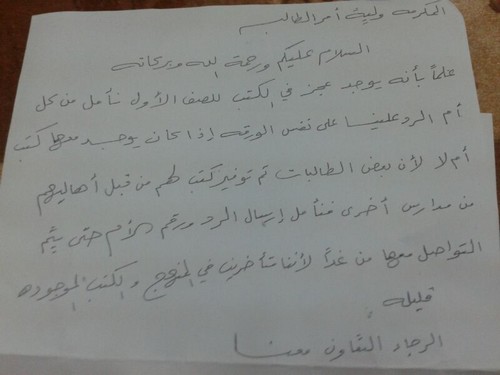 المكرمه ولية أمر الطالبه
السلام عليكم ورحمة الله وبركاته
علماً بأنه يوجد عجز في الكتب للصف الأول نأمل من كل
أم الرد علينا على نفس الورقه إذا كان يوجد معها كتب
أم لا لأن بعض الطالبات تم توفير كتب لهم من قبل أهاليهم
من مدارس أخرى فنأمل إرسال الرد ورقم الأم حتى يتم
التواصل معها من غداً لأننا متأخرين في المنهج والكتب الموجوده
قليله
الرجاء التعاون معنا